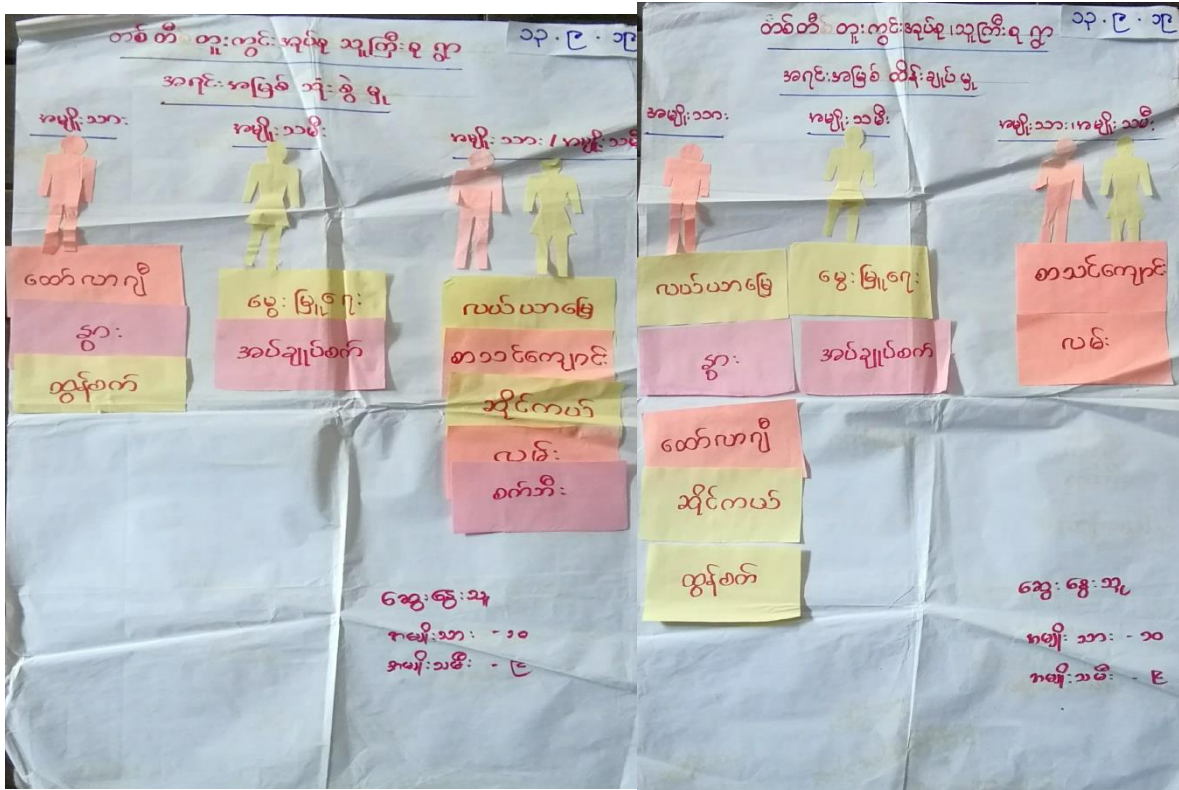 ၁၃.၉.၁၉
တစ်တီ တူးကွင်းအုပ်စု သူကြီးစု ရွာ
အရင်းအမြစ် သုံးစွဲ မှု
အမျိုးသား
အမျိုးသမီး
အမျိုးသား / အမျိုးသမီး
ထော်လာဂျီ
နွား
ထွန်စက်
မွေးမြူရေး
အပ်ချုပ်စက်
လယ်ယာမြေ
စာသင်ကျောင်း
ဆိုင်ကယ်
လမ်း
စက်ဘီး
ဆွေးနွေးသူ
အမျိုးသား - ၁၀
အမျိုးသမီး - ၉
၁၃.၉.၁၉
တစ်တီ တူးကွင်းအုပ်စု၊သူကြီးစု ရွာ
အရင်းအမြစ် ထိန်းချုပ်မှု
အမျိုးသား
အမျိုးသမီး
အမျိုးသား၊အမျိုးသမီး
လယ်ယာမြေ
နွား
ထော်လာဂျီ
ဆိုင်ကယ်
ထွန်စက်
မွေးမြူရေး
အပ်ချုပ်စက်
စာသင်ကျောင်း
လမ်း
ဆွေးနွေးသူ
အမျိုးသား - ၁၀
အမျိုးသမီး - ၉